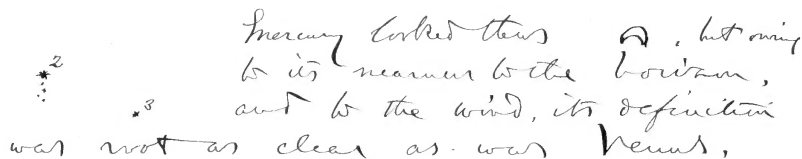 Mercury looked thus , but owing
2
to its nearness to the horizon,
3 and to the wind, its definition
was not as clear as was Venus.